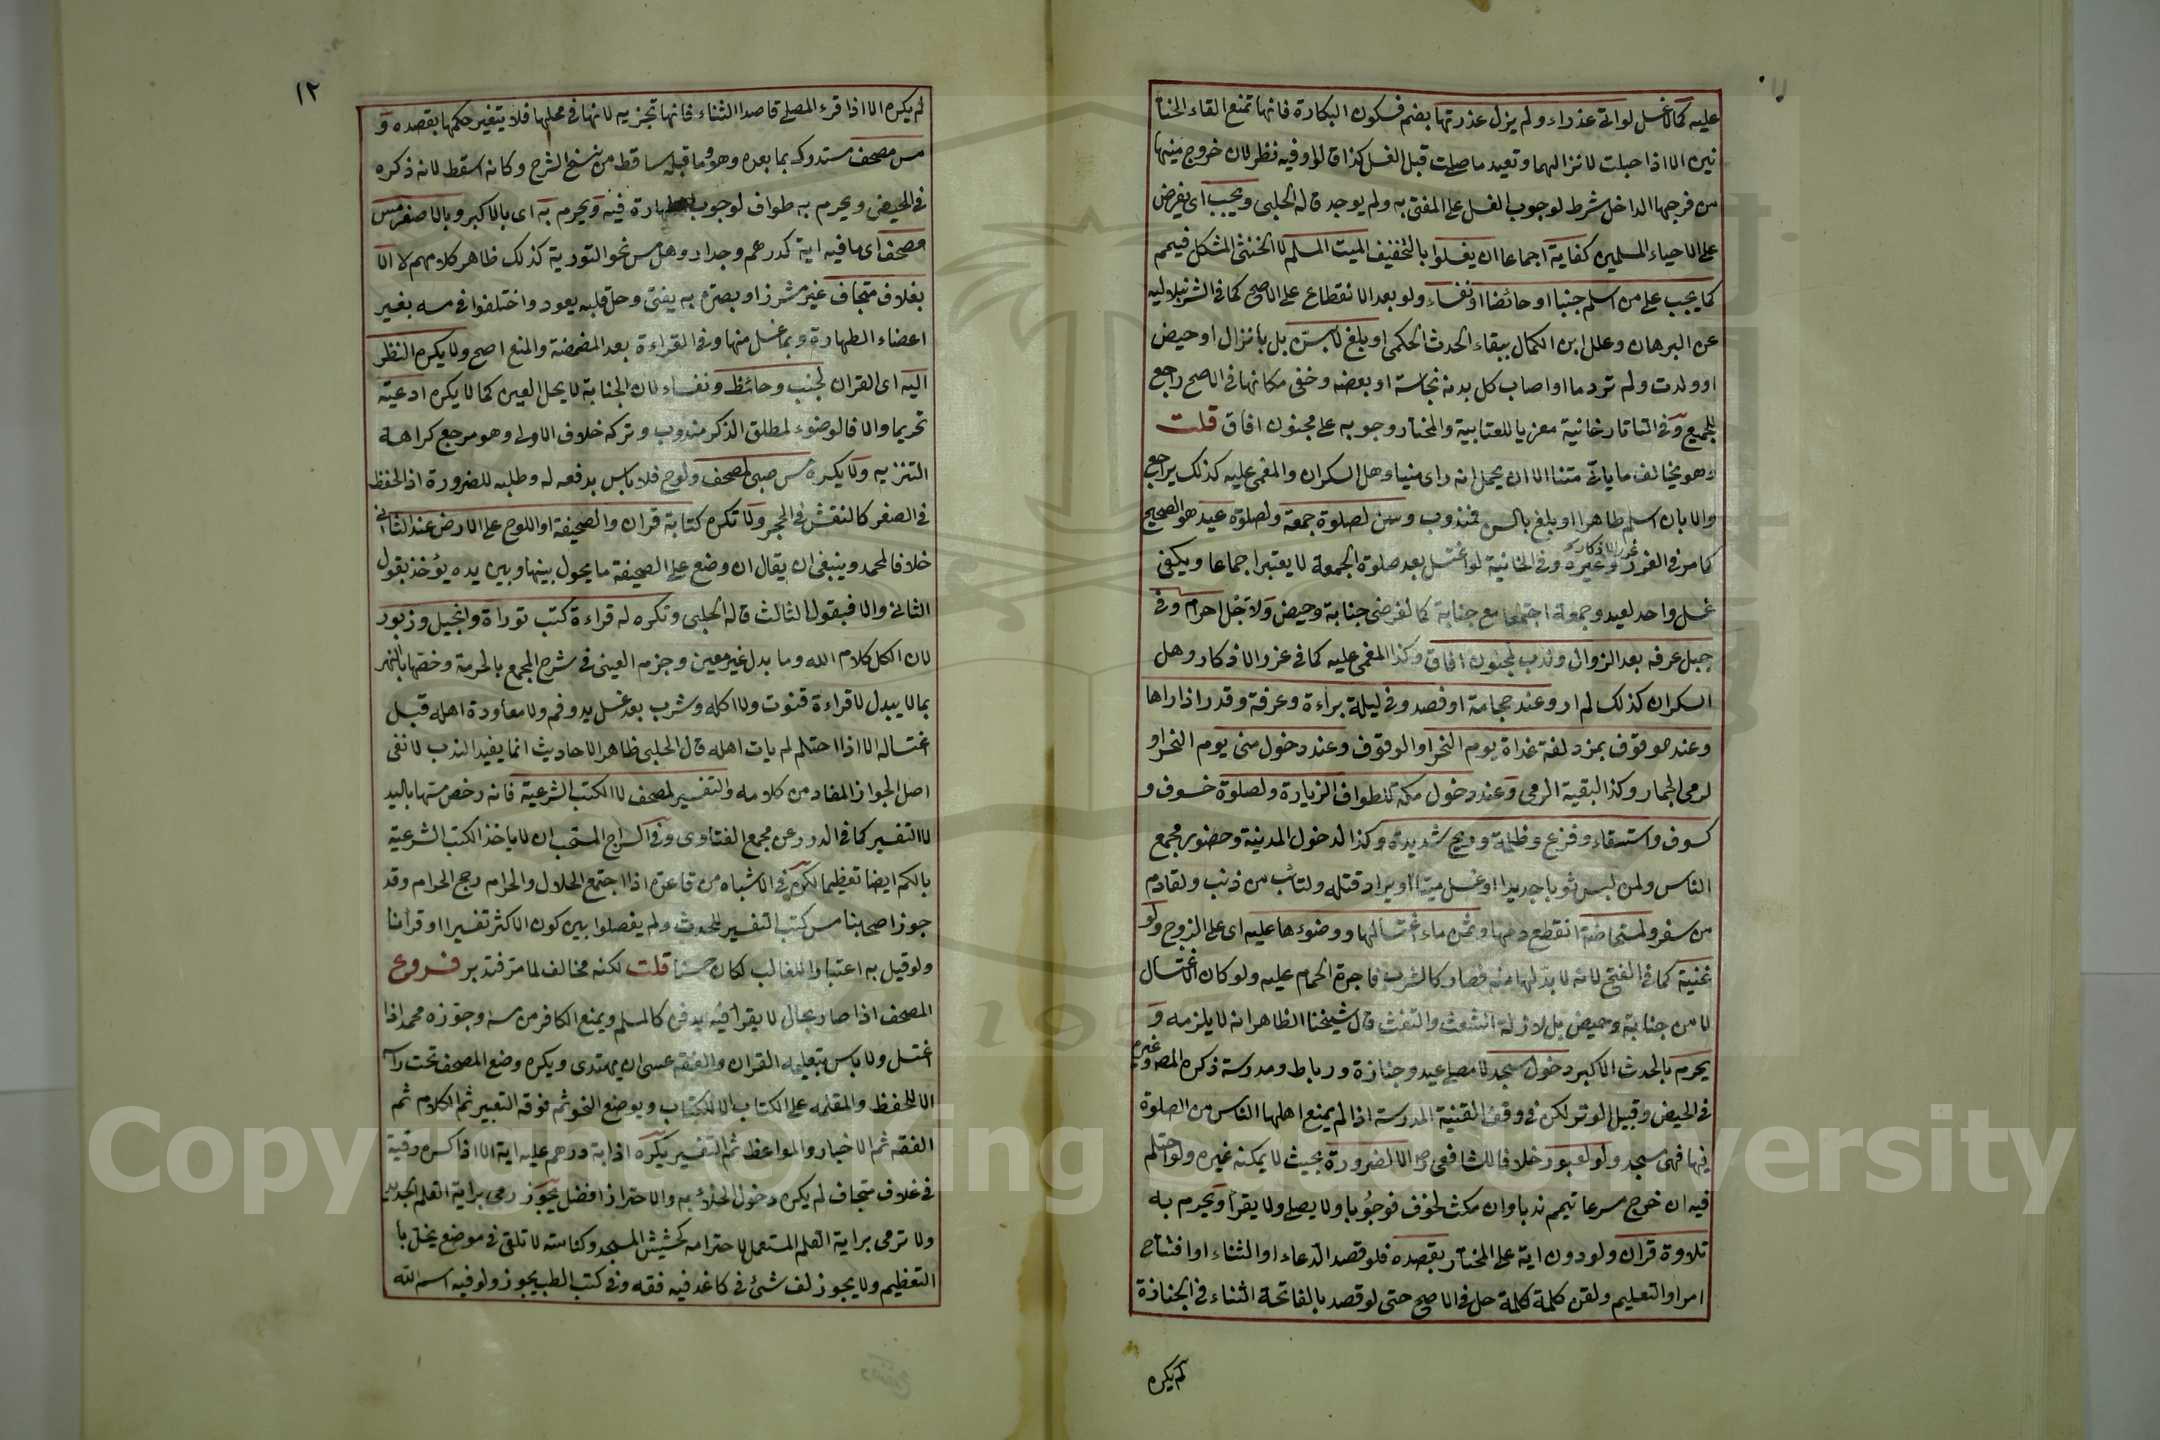 عليه كما لا غسل لو اتى عذراء ولم يزل عذرتها بضم فسكون البكارة فانها تمنع التقاء الختا
نين الا اذا حبلت لانزالهما وتعيد ما صلت قبل الغسل كذا قالوا وفيه نظر لان خروج منيها
من فرجها الداخل شرط لوجوب الغسل على المفتى به ولم يوجد قاله الحلبى ويجب اى يفرض
على الاحياء المسلمين كفاية اجماعا ان يغسلوا بالتخفيف الميت المسلم لا الخنثى المشكل فييمم
كما يجب على من اسلم جنبا او حائضا او نفساء ولو بعد الانقطاع على الاصح كما فى الشرنبلاليه
عن البرهان وعلل ابن الكمال ببقاء الحدث الحكمى او بلغ لا بسن بل بانزال او حيض
او ولدت ولم تر دما او اصاب كل بدنه نجاسة او بعضه وخفى مكانها فى الاصح راجع
للجميع وفى التاتارخانية معزيا للعتابية والمختار وجوبه على مجنون افاق قلت
وهو يخالف ما ياتى متنا الا ان يحمل انه راى منيا وهل السكران والمغمى عليه كذلك يراجع
والا بان اسلم طاهرا او بلغ بالسن فمندوب وسن لصلوة جمعة ولصلوة عيد هو الصحيح
كما مر فى الغرر غرر الاذكار وغيره وفى الخانية لو اغتسل بعد صلوة الجمعة لا يعتبر اجماعا ويكفى
غسل واحد لعيد وجمعة اجتمعا مع جنابة كما لفرضى جنابة وحيض ولاجل احرام وفى
جبل عرفه بعد الزوال وندب لمجنون افاق وكذا المغمى عليه كما فى غرر الاذكار وهل
السكران كذلك لم ار وعند حجامة او فصد وفى ليلة براءة وعرفة وقدر اذا راها
وعند وقوف بمزدلفة غداة يوم النحر او الوقوف وعند دخول منى يوم النحر او
لرمى الجمار وكذا لبقية الرمى وعند دخول مكة للطواف الزيارة ولصلوة خسوف و
كسوف واستسقاء وفزع وظلمة وريح شديدة وكذا الدخول المدينة وحضور مجمع
الناس ولمن لبس ثوبا جديدا او غسل ميتا او يراد قتله ولتائب من ذنب ولقادم
من سفر ولمستحاضة انقطع دمها وثمن ماء اغتسالها ووضوءها عليه اى على الزوج ولو
غنية كما فى الفتح لانه لا بد لها منه فصار كالشرب فاجرة الحمام عليه ولو كان الاغتسال
لا من جنابة وحيض بل لازلة الشعث والتفث قال شيخنا الظاهر انه لا يلزمه و
يحرم بالحدث الاكبر دخول مسجد لا مصلى عيد وجنازة ورباط ومدرسة ذكره المص وغيره
فى الحيض وقبيل الوتر لكن فى وقف القنية المدرسة اذا لم يمنع اهلها الناس من الصلوة
فيها فهى مسجد ولو لعبور خلافا للشافعى رح الا لضرورة بحيث لا يمكنه غيره ولو احتلم
فيه ان خرج مسرعا تيمم ندبا وان مكث لخوف فوجوبا ولا يصلى ولا يقرأ ويحرم به
تلاوة قران ولو دون اية على المختار بقصده فلو قصد الدعاء او الثناء او افتتاح
امر او التعليم ولقن كلمة كلمة حل فى الاصح حتى لو قصد بالفاتحة الثناء فى الجنازة
لم يكره
١٢
لم يكره الا اذا قرء المصلى قاصدا الثناء فانها تجزيه لانها فى محلها فلا يتغير حكمها بقصده و
مس مصحف مستدرك بما بعده وهو وما قبله ساقط من نسخ الشرح وكانه اسقط لانه ذكره
فى الحيض ويحرم به طواف لوجوب الطهارة فيه ويحرم به اى بالاكبر وبالاصغر مس
مصحف اى ما فيه اية كدرهم وجدار وهل مس نحو التورية كذلك ظاهر كلامهم لا الا
بغلاف متجاف غير مشرز او بصرة به يفتى وحل قلبه بعود واختلفوا فى مسه بغير
اعضاء الطهارة وبما غسل منها وفى القراءة بعد المضمضة والمنع اصح ولا يكره النظر
اليه اى القران لجنب وحائظ ونفساء لان الجنابة لا يحل العين كما لا يكره ادعية
تحريما والا فالوضوء لمطلق الذكر مندوب وتركه خلاف الاولى وهو مرجع كراهة
التنزيه ولا يكره مس صبى لمصحف ولوح فلا باس بدفعه له وطلبه للضرورة اذ الحفظ
فى الصغر كالنقش فى الحجر ولا تكره كتابة قران والصحيفة او اللوح على الارض عند الثانى
خلافا لمحمد وينبغى ان يقال ان وضع على الصحيفة ما يحول بينها وبين يده يؤخذ بقول
الثانى والا فبقول الثالث قاله الحلبى وتكره له قراءة كتب توراة وانجيل وزبور
لان الكل كلام الله وما بدل غير معين وجزم العينى فى شرح المجمع بالحرمة وخصها بالنهر
بما لا يبدل لا قراءة قنوت ولا اكله وشرب بعد غسل يد وفم ولا معاودة اهله قبل
اغتساله الا اذا احتلم لم يات اهله قال الحلبى ظاهر الاحاديث انما يفيد الندب لا نفى
اصل الجواز المفاد من كلامه والتفسير لمصحف لا الكتب الشرعية فانه رخص مسها باليد
لا التفسير كما فى الدرر عن مجمع الفتاوى وفى السراج المستحب ان لا ياخذ الكتب الشرعية
بالكم ايضا تعظيما لكن فى الاشباه من قاعدة اذا اجتمع الحلال والحرام رجح الحرام وقد
جوز اصحابنا مس كتب التفسير للمحدث ولم يفصلوا بين كون الاكثر تفسيرا او قرأنا
ولو قيل به اعتبارا للغالب لكان حسنا قلت لكنه مخالف لما مر فتدبر فروع
المصحف اذا صار بحال لا يقرأ فيه يدفن كالمسلم ويمنع الكافر من مسه وجوزه محمد اذا
اغتسل ولا باس بتعليمه القران والفقه عسى ان يهتدى ويكره وضع المصحف تحت راسه
الا للحفظ والمقلمه على الكتاب الا للكتاب ويوضع النحو ثم فوقه التعبير ثم الكلام ثم
الفقه ثم الاخبار والمواعظ ثم التفسير يكره اذابة درهم عليه اية الا اذا كسره رقية
فى غلاف متجاف لم يكره دخول الخلاء به والاحتراز افضل يجوز رمى براية القلم الجديد
ولا ترمى براية القلم المستعمل لاحترامه كحشيش المسجد وكناسته لا تلقى فى موضع يخل با
التعظيم ولا يجوز لف شئ فى كاغد فيه فقه وفى كتب الطب يجوز ولو فيه اسم الله
Copyright © King Saud University
1957